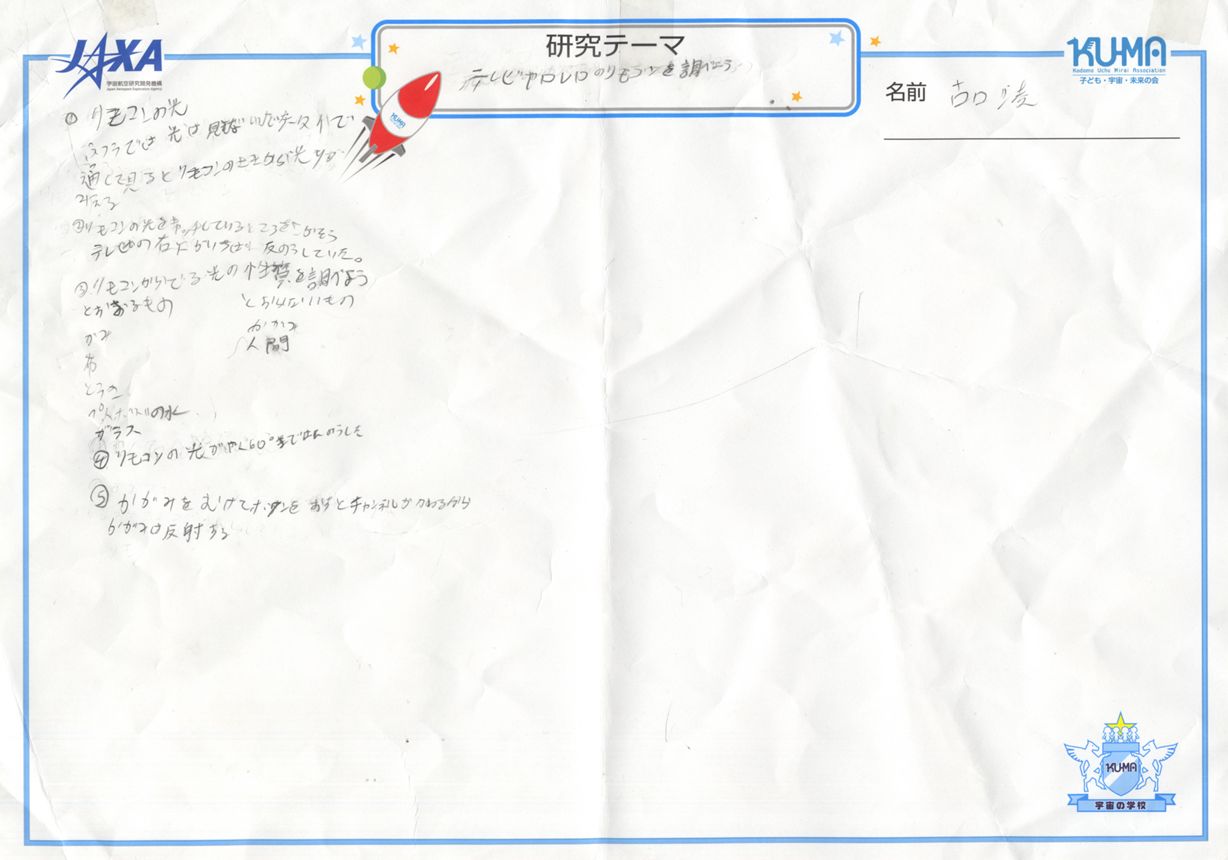 JAXA
宇宙航空研究開発機構
Japan Aerospace Exploration Agency
研究テーマ
テレビやDVDのリモコンを調べよう
KUMA
KU-MA
Kodomo Uchu Mirai Association
子ども・宇宙・未来の会
名前 古口 凌
① リモコンの光
では 光は 見えないが
通して見るとリモコンの 光が
みえる
②リモコンの光をキャッチしているところをさがそう
テレビの右 反のうしていた。
③リモコンからでる光の性質を調べよう
とおるもの とおらないもの
かみ かがみ
布 人間
ペットボトルの水
ガラス
④リモコンの光がやく60°まではんのうした
⑤ かがみをむけてボタンをおすとチャンネルがかわるから
かがみは反射する
KU-MA
宇宙の学校